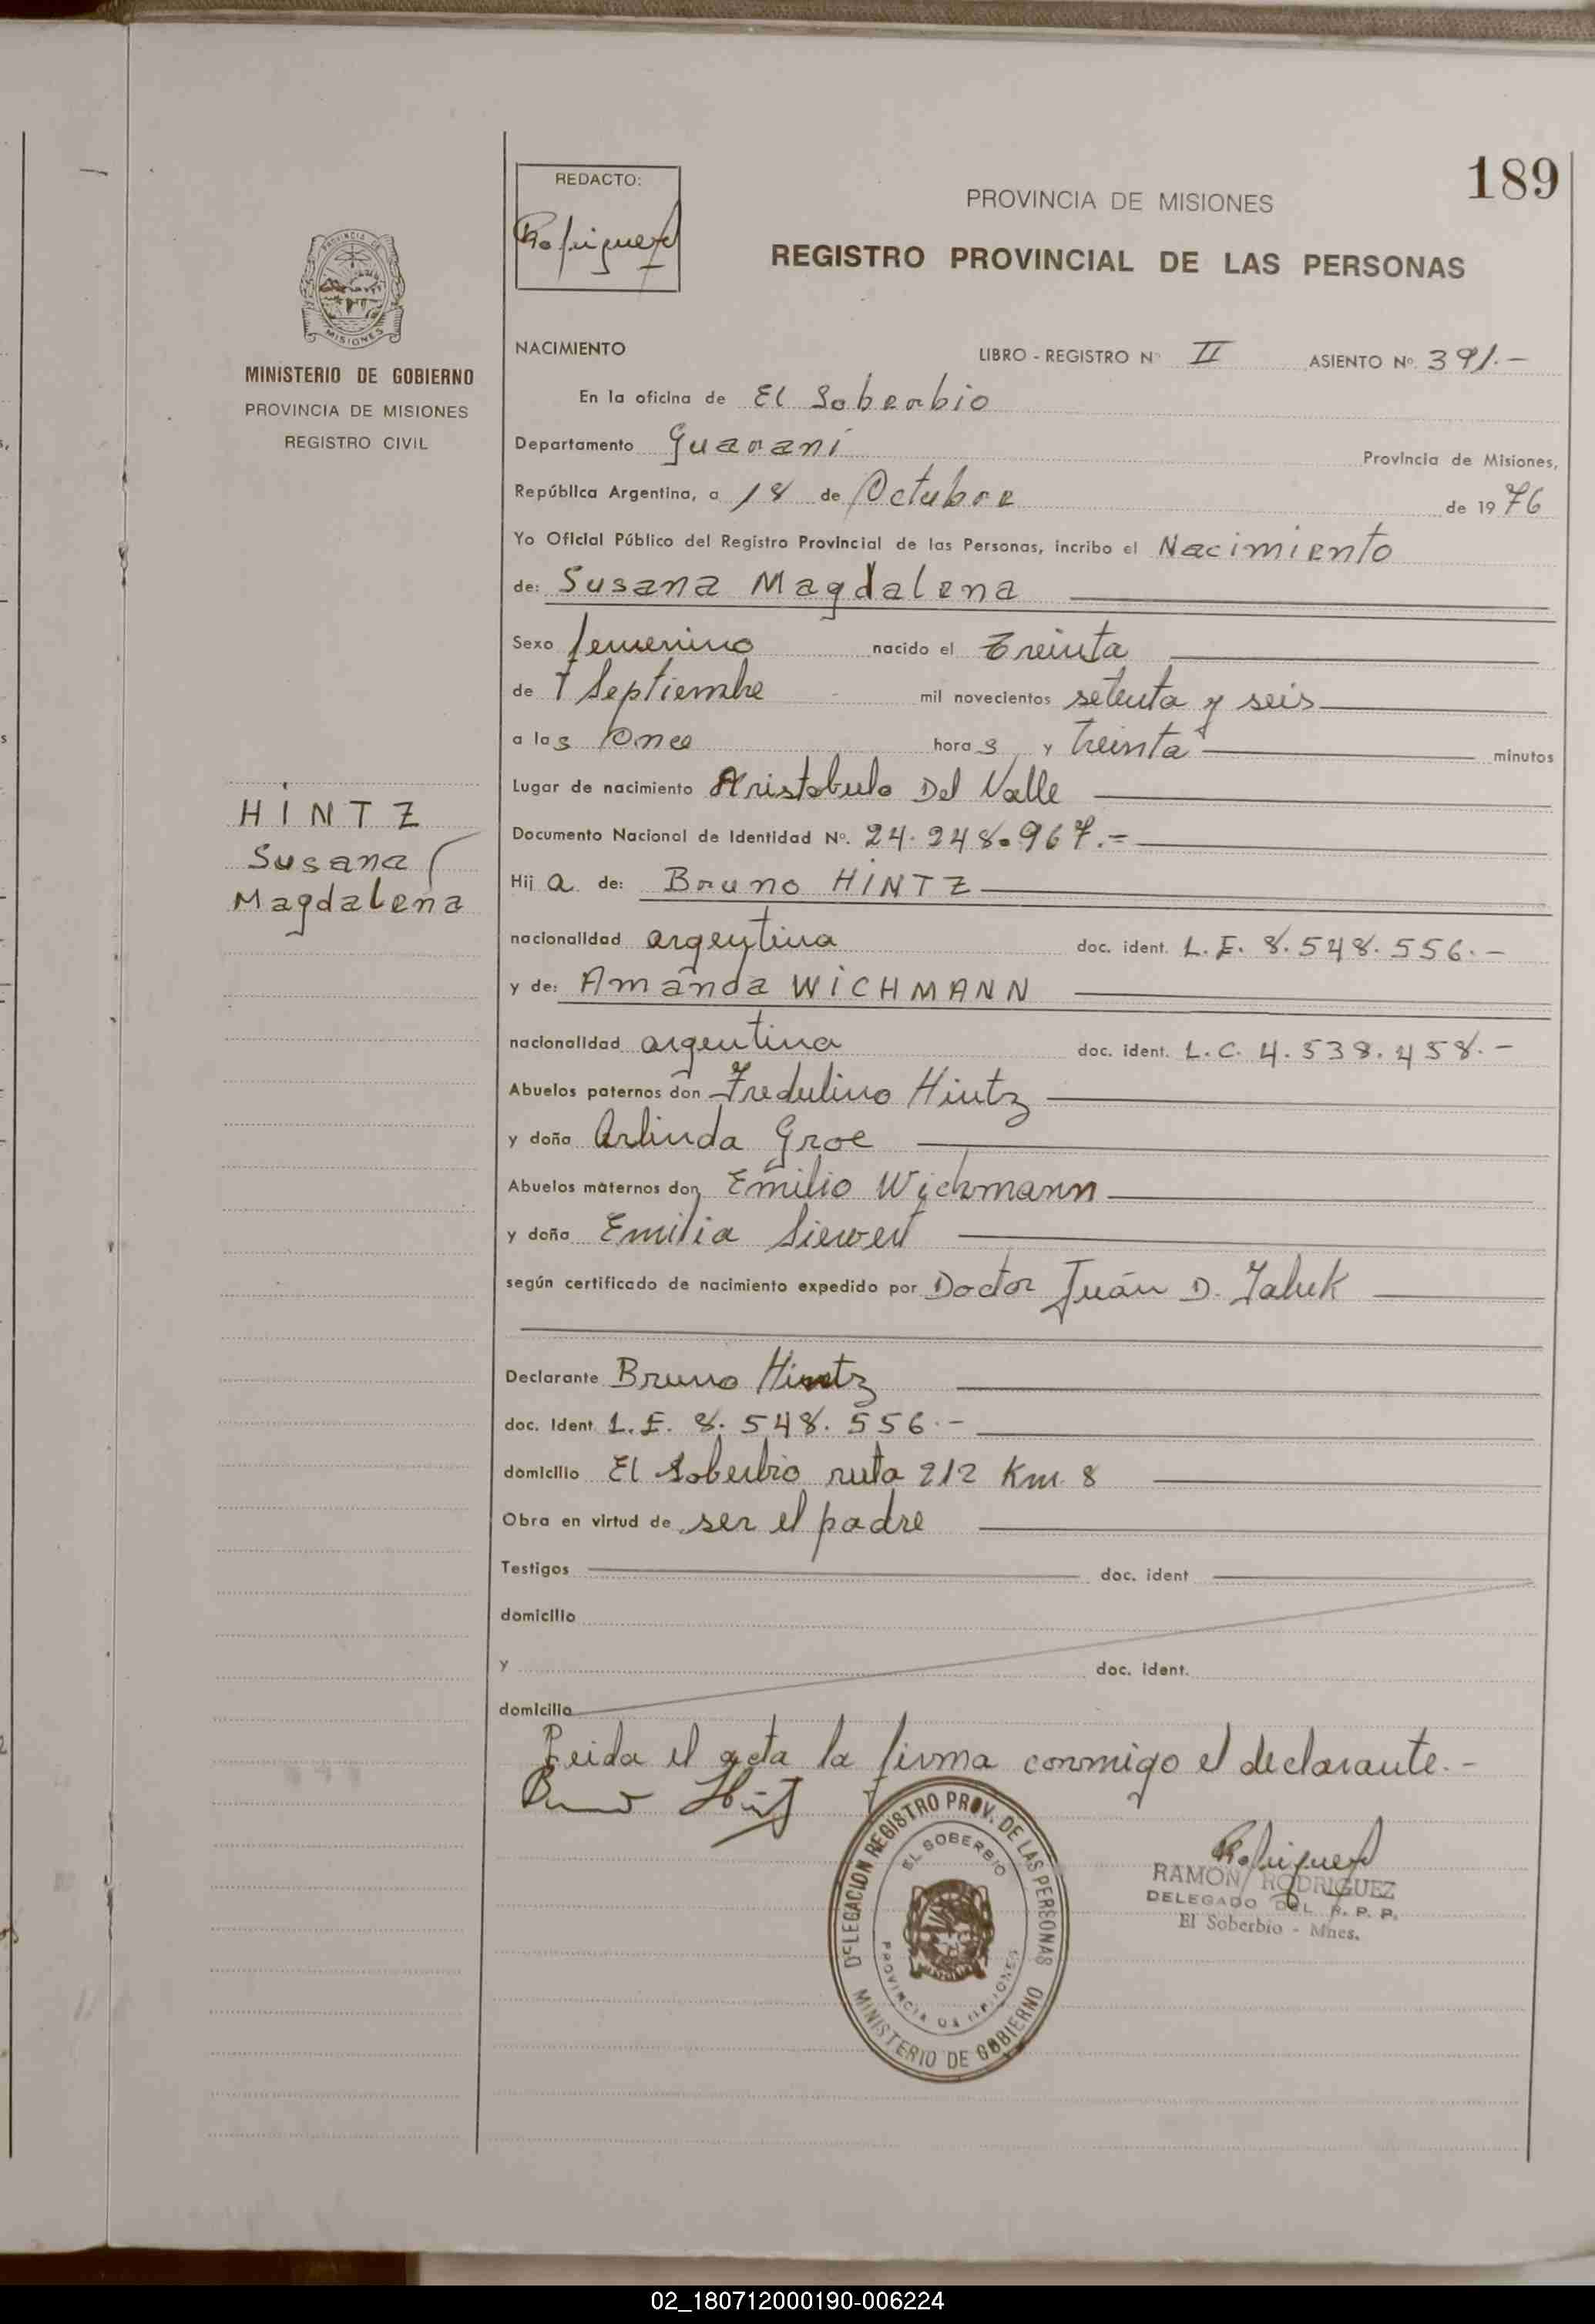 189
REDACTO:
Rodriguez
PROVINCIA DE MISIONES
REGISTRO PROVINCIAL DE LAS PERSONAS
PROVINCIA DE
MISIONES
MINISTERIO DE GOBIERNO
PROVINCIA DE MISIONES
REGISTRO CIVIL
NACIMIENTO
LIBRO - REGISTRO Nº II ASIENTO Nº 391.-
En la oficina de El Soberbio
Departamento Guaraní Provincia de Misiones,
República Argentina, a 18 de Octubre de 1976
Yo Oficial Público del Registro Provincial de las Personas, incribo el Nacimiento
de: Susana Magdalena
Sexo femenino nacido el treinta
de Septiembre mil novecientos setenta y seis
a las Once horas y treinta minutos
Lugar de nacimiento Aristobulo Del Valle
HINTZ
Susana
Magdalena
Documento Nacional de Identidad Nº. 24.248.967.=
Hija de: Bruno HINTZ
nacionalidad argentina doc. ident. L.E. 8.548.556.-
y de: Amanda WICHMANN
nacionalidad argentina doc. ident. L.C. 4.538.458.-
Abuelos paternos don Fredulino Hintz
y doña Arlinda Groe
Abuelos maternos don Emilio Wichmann
y doña Emilia Siewert
según certificado de nacimiento expedido por Doctor Juán D.
Declarante Bruno Hintz
doc. Ident L.E. 8.548.556.-
domicilio El Soberbio ruta 212 Km. 8
Obra en virtud de ser el padre
Testigos doc. ident
domicilio
y doc. ident.
domicilio
Leida el acta la firma conmigo el declarante.-
Bruno Hintz
DELEGACION REGISTRO PROV. DE LAS PERSONAS
EL SOBERBIO
PROVINCIA DE MISIONES
MINISTERIO DE GOBIERNO
Rodriguez
RAMON RODRIGUEZ
DELEGADO DEL R. P. P.
El Soberbio - Mnes.
02_180712000190-006224